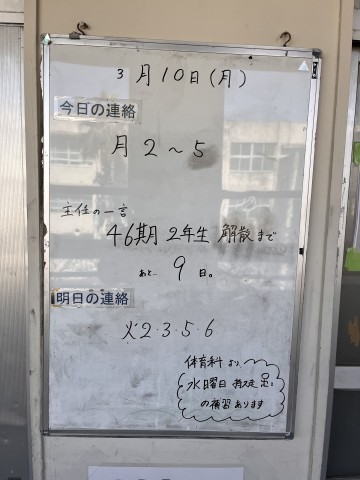 3月10日(月)
今日の連絡
月2～5
主任の一言
46期 2年生 解散まで
あと 9 日。
明日の連絡
火2・3・5・6
体育科より、
水曜日
の補習あります